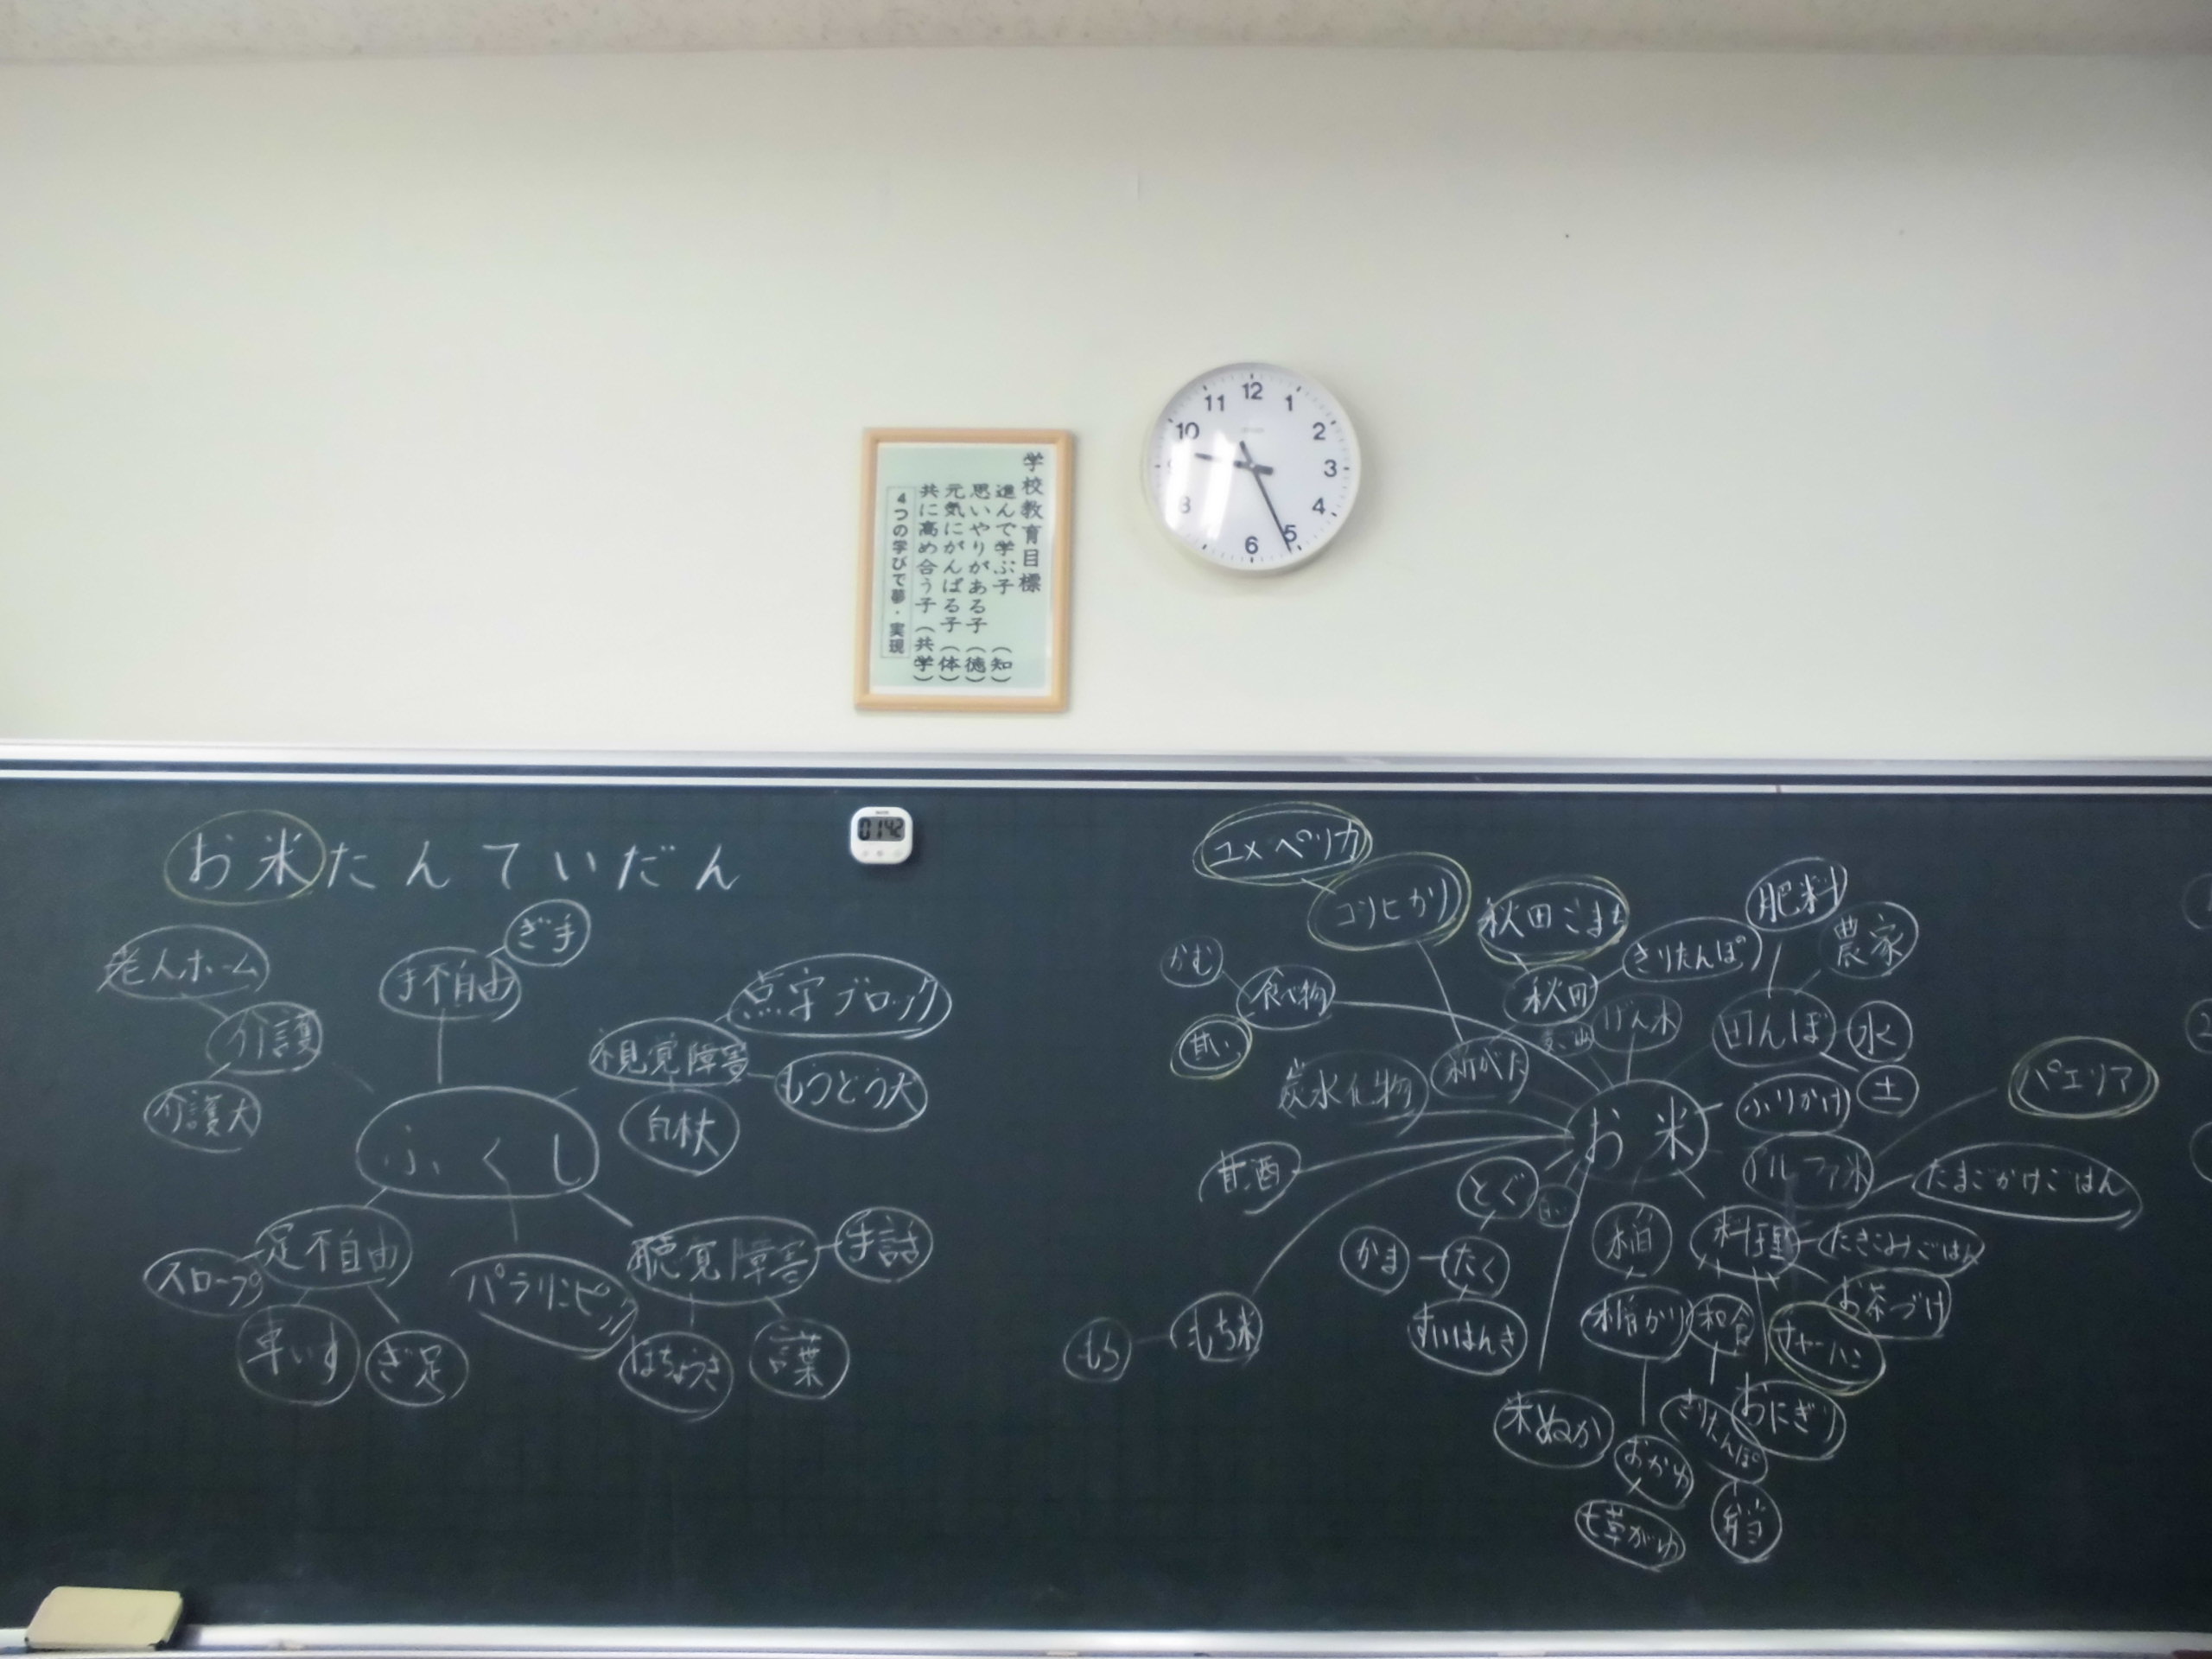 学校教育目標
進んで学ぶ子 (知)
思いやりがある子 (徳)
元気にがんばる子 (体)
共に高め合う子 (共学)
4つの学びで夢・実現
12
1
2
3
4
5
6
8
10
11
0142
お米たんていだん
ふくし
手不自由
ぎ手
老人ホーム
介護
介護犬
視覚障害
点字ブロック
もうどう犬
白杖
足不自由
スロープ
車いす
ぎ足
パラリンピック
聴覚障害
手話
ほちょうき
言葉
お米
ユメペリカ
コシヒカリ
秋田こまち
秋田
きりたんぽ
肥料
農家
田んぼ
水
土
かむ
食べ物
甘い
新がた
げん米
炭水化物
ふりかけ
アルファ米
パエリア
甘酒
とぐ
たまごかけごはん
稲
料理
たきこみごはん
かま
たく
お茶づけ
すいはんき
稲かり
和食
チャーハン
もち
もち米
米ぬか
きりたんぽ
おにぎり
おかゆ
七草がゆ
弁当